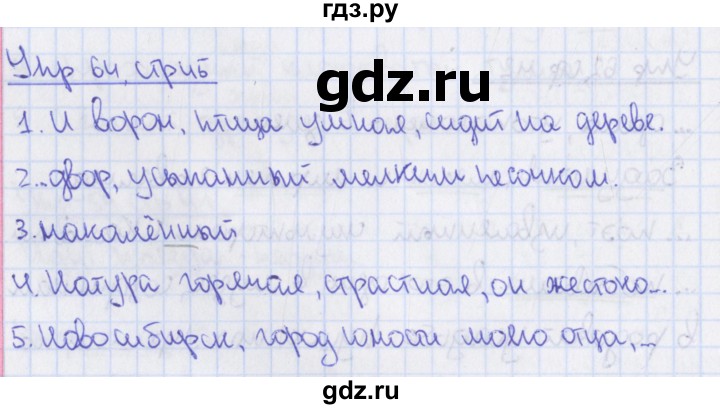 гдз.ру
Упр 64, стр15
gdz.ru
1. И ворон, птица умная, сидит на дереве.
2...двор, усыпанный мелким песочком.
3. накалённый
4. Натура горячая, страстная, он жестоко...
5. Новосибирск, город юности моего отца,...
gdz.ru